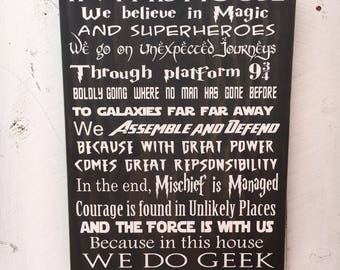 We believe in Magic
AND SUPERHEROES
We go on Unexpected Journeys
Through platform 9¾
BOLDLY GOING WHERE NO MAN HAS GONE BEFORE
TO GALAXIES FAR FAR AWAY
We ASSEMBLE AND DEFEND
BECAUSE WITH GREAT POWER
COMES GREAT REPSONSIBILITY
In the end, Mischief is Managed
Courage is found in Unlikely Places
AND THE FORCE IS WITH US
Because in this house
WE DO GEEK